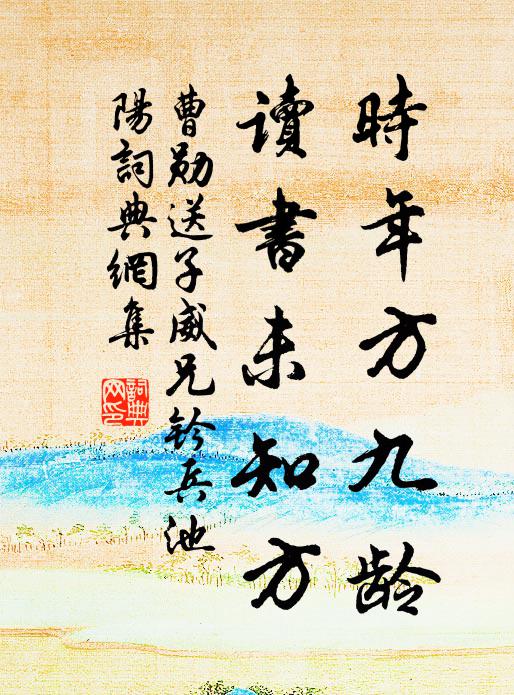 時年方九龄
讀書未知方
曹勋送子威兄鈐兵池
陽詞典網集
詞典
网印